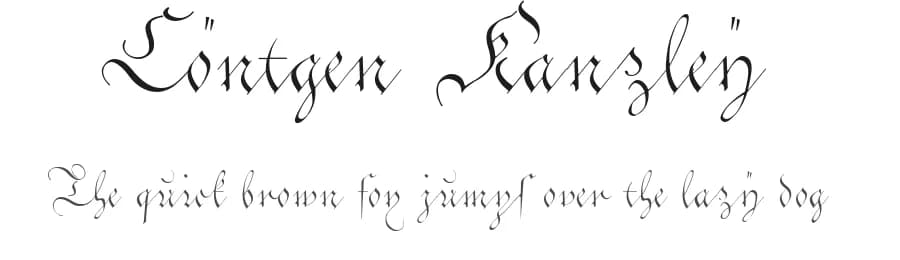 Cöntgen Kanzleÿ
The quick brown fox jumps over the lazÿ dog